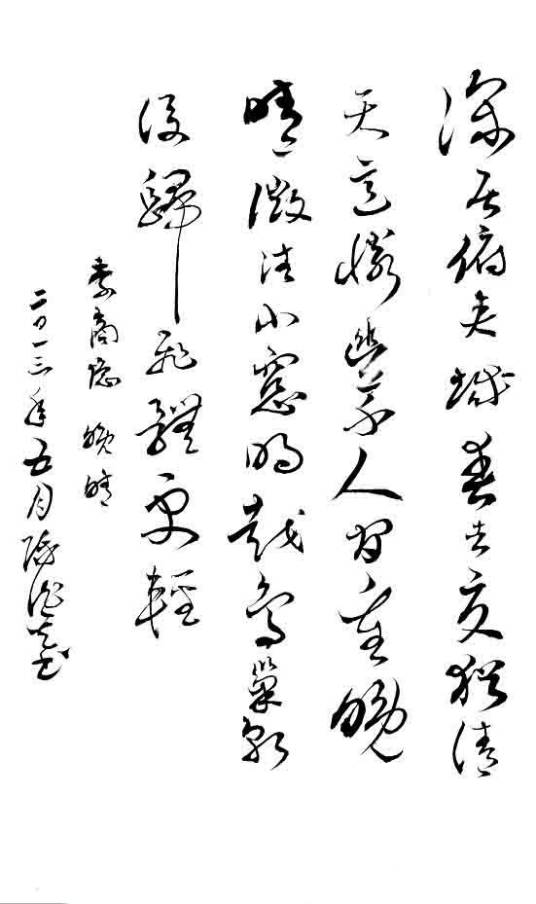 深居俯夾城春去夏猶清
天意憐幽草人間重晚
晴微注小窻明越鳥巢乾
後歸飛體更輕
李商隱 晚晴
二〇一三年五月書